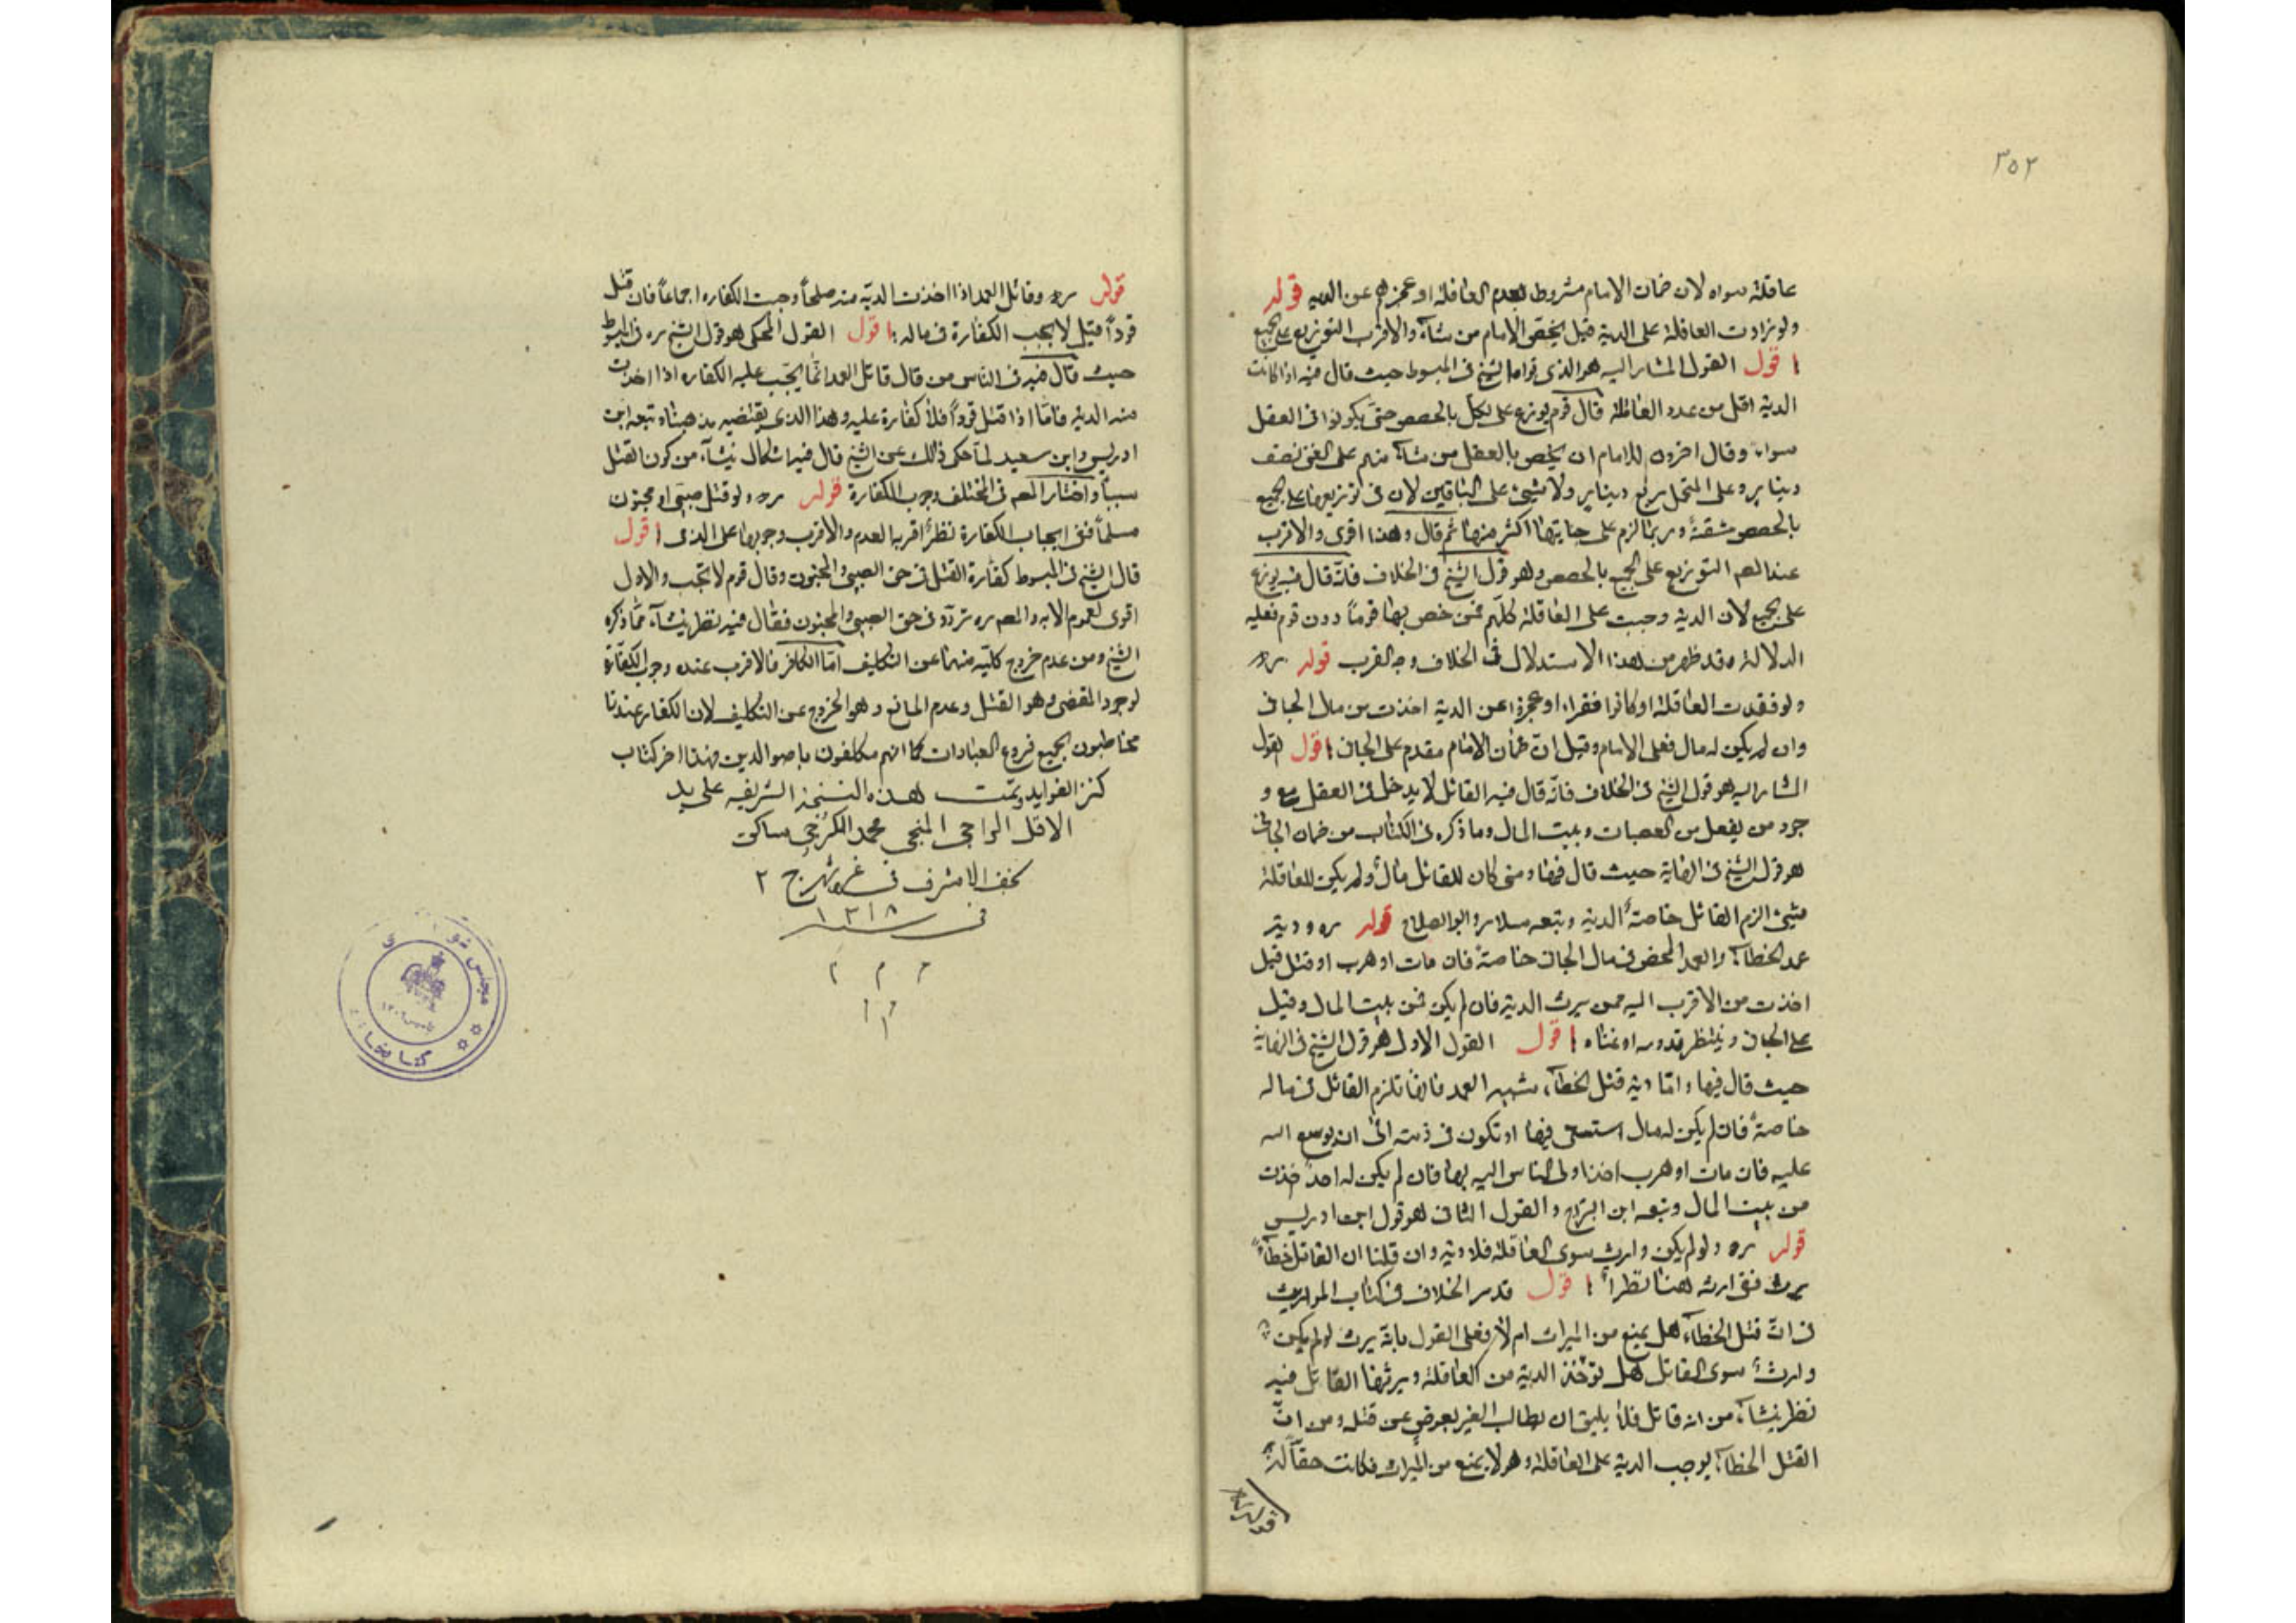 ٣٥٢
عاقلة سواه لان ضمان الامام مشروط بعدم العاقلة او عجزهم عن الدية قوله
ولو زادت العاقلة على الدية قيل يخص الامام من شاء والاقرب التوزيع على الجميع
اقول القول المشار اليه هو الذى قواه الشيخ فى المبسوط حيث قال فيه اذا كانت
الدية اقل من عدد العاقلة قال قوم يوزع على الكل بالحصص حتى يكونوا فى العقل
سواء وقال اخرون للامام ان يخص بالعقل من شاء منهم على الغنى نصف
دينار وعلى المتجمل ربع دينار ولا شىء على الباقين لان فى توزيعها على الجميع
بالحصص مشقة وربما لزم على جبايتها اكثر منها ثم قال وهذا اقوى والاقرب
عند المص التوزيع على الجميع بالحصص وهو قول الشيخ فى الخلاف فانه قال فيه يوزع
على الجميع لان الدية وجبت على العاقلة كلهم فمن خص بها قوماً دون قوم فعليه
الدلالة وقد ظهر من هذا الاستدلال فى الخلاف وجه القرب قوله ره
ولو فقدت العاقلة او كانوا فقراء او عجزوا عن الدية اخذت من مال الجانى
وان لم يكن له مال فعلى الامام وقيل ان ضمان الامام مقدم على الجانى اقول القول
المشار اليه هو قول الشيخ فى الخلاف فانه قال فيه القاتل لا يدخل فى العقل مع و
جود من يعقل من العصبات وبيت المال وما ذكره فى الكتاب من ضمان الجانى
هو قول الشيخ فى النهاية حيث قال فيها ومتى كان للقاتل مال ولم يكن للعاقلة
شىء الزم القاتل خاصة الدية وتبعه سلار وابو الصلاح قوله ره ودية
عمد الخطاء والعمد المحض فى مال الجانى خاصة فان مات او هرب او قتل قيل
اخذت من الاقرب اليه ممن يرث الدية فان لم يكن فمن بيت المال وقيل
على الجانى وينتظر قدومه او غناه اقول القول الاول هو قول الشيخ فى النهاية
حيث قال فيها واما دية قتل الخطاء شبيه العمد فانها تلزم القاتل فى ماله
خاصة فان لم يكن له مال استسعى فيها او تكون فى ذمته الى ان يوسع الله
عليه فان مات او هرب اخذ اولى الناس اليه بها فان لم يكن له احد اخذت
من بيت المال وتبعه ابن البراج والقول الثانى هو قول ابن ادريس
قوله ره ولو لم يكن وارث سوى العاقلة فلا دية وان قلنا ان القاتل خطاءً
يرث ففى ارثه هنا نظر اقول قد مر الخلاف فى كتاب المواريث
فى ان قتل الخطاء هل يمنع من الميراث ام لا فعلى القول بانه يرث لو لم يكن
وارث سوى القاتل هل تؤخذ الدية من العاقلة ويرثها القاتل فيه
نظر ينشاء من انه قاتل فلا يليق ان يطالب الغير بعوض عن قتله ومن ان
القتل الخطاء يوجب الدية على العاقلة وهو لا يمنع من الميراث فكانت حقاً له
قوله ره
قوله ره وقاتل العمد اذا اخذت الدية منه صلحاً وجبت الكفارة اجماعاً فان قتل
قوداً قيل لا يجب الكفارة فى ماله اقول القول المحكى هو قول الشيخ ره فى المبسوط
حيث قال فيه فى الناس من قال قاتل العمد انما يجب عليه الكفاره اذا اخذت
منه الدية فاما اذا قتل قوداً فلا كفارة عليه وهذا الذى يقتضيه مذهبنا وتبعه ابن
ادريس وابن سعيد لما حكى ذلك عن الشيخ قال فيه اشكال ينشاء من كون القتل
سبباً واختار المص فى المختلف وجوب الكفارة قوله ره ولو قتل صبى او مجنون
مسلماً ففى ايجاب الكفارة نظر اقربه العدم والاقرب وجوبها على الذمى اقول
قال الشيخ فى المبسوط كفارة القتل فى حق الصبى والمجنون وقال قوم لا تجب والاول
اقوى لعموم الايه والمص ره تردد فى حق الصبى والمجنون فقال فيه نظر ينشاء مما ذكره
الشيخ ومن عدم خروج كليه منهما عن التكليف اما الكافر فالاقرب عنده وجوب الكفارة
لوجود المقتضى وهو القتل وعدم المانع وهو الخروج عن التكليف لان الكفار عندنا
مخاطبون بجميع فروع العبادات كما انهم مكلفون باصول الدين فهذا اخر كتاب
كنز الفوايد وتمت هذه النسخة الشريفه على يد
الاقل الراجى المنجى محمد الكرنجى ساكن
نجف الاشرف فى غره شهر ج ٢
فى سنه ١٣١٨
م م م
مجلس شو ى
كتابخا